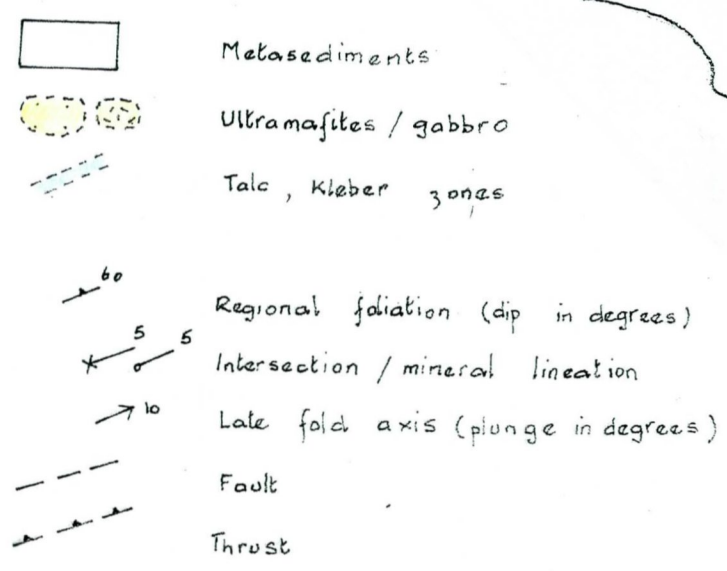 Metasediments
Ultramafites / gabbro
Talc, Kleber zones
60
Regional foliation (dip in degrees)
5 5
Intersection / mineral lineation
10
Late fold axis (plunge in degrees)
Fault
Thrust